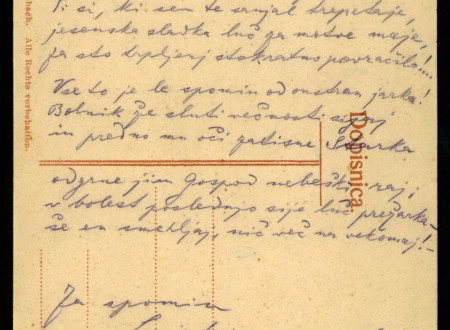 Ti si, ki sem te sanjal trepetaje,
jesenska sladka luč za mrtve maje,
za sto trpljenj stokratno povračilo!...
Vse to je le spomin od onstran jarka!
Bolnik že sluti večnosti sijaj
in predno mu oči zatisne Starka
odgrne jim Gospod nebeški raj;
v bolest poslednjo sije luč prežarka –
še en smehljaj, nič več na vekomaj! –
Za spomin
Dopisnica.
bach. Alle Rechte vorbehalten.